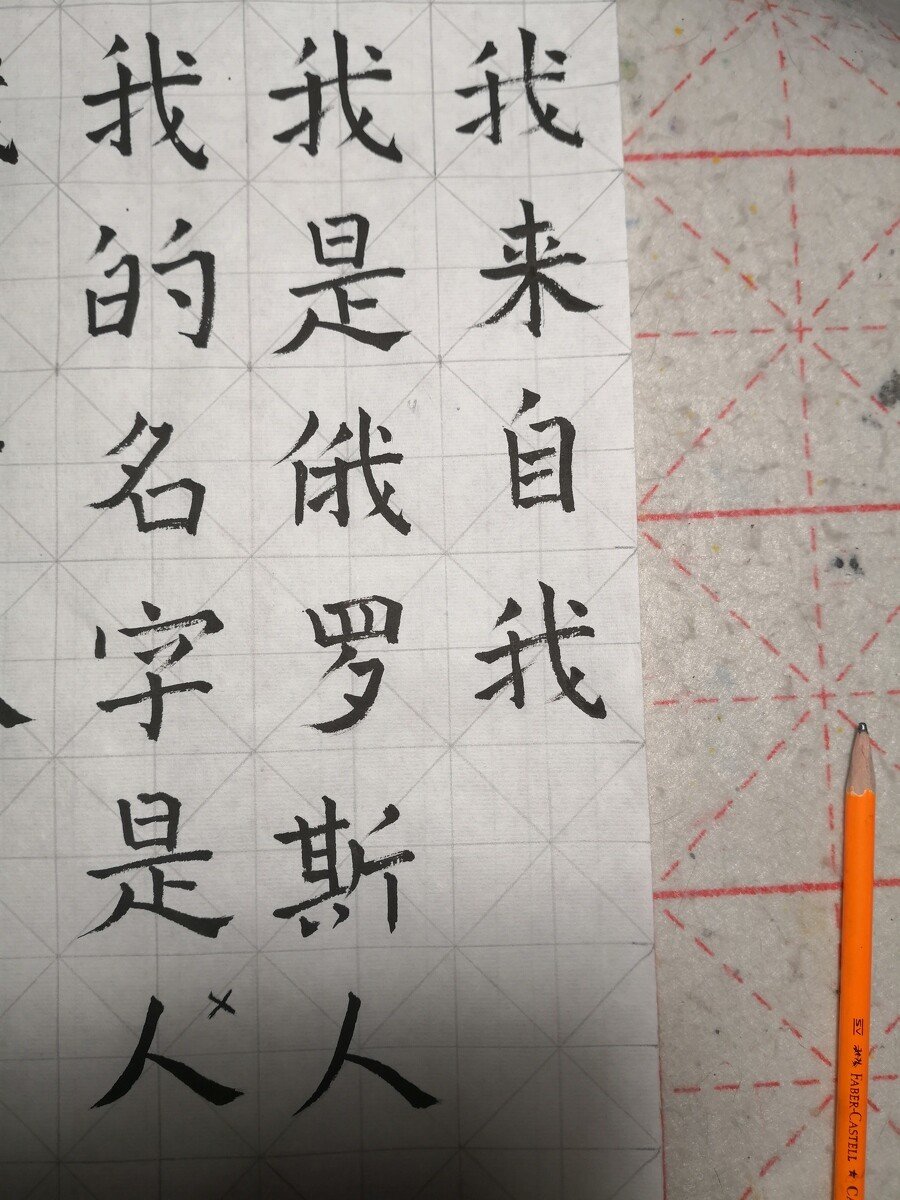 我来自我
我是俄罗斯人
我的名字是人×
SV FABER-CASTELL